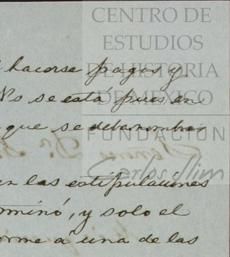 CENTRO DE
ESTUDIOS
DE HISTORIA
DE MEXICO
FUNDACIÓN
Carlos Slim
hacerse pagos y
No se está pues en
que se deba nombrar
en las estipulaciones
ominó, y solo el
orme a una de las